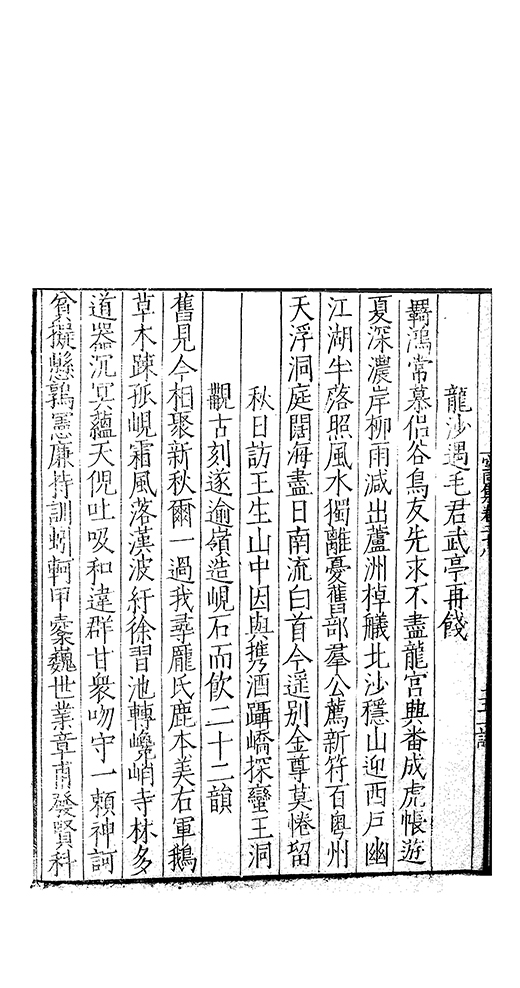 龍沙遇毛君武亭再餞
羈鴻常慕侶谷鳥友先求不盡龍宮興番成虎帳遊
夏深濃岸柳雨減出蘆洲棹艤北沙穩山迎西戶幽
江湖半落照風水獨離憂舊部羣公薦新符百粵州
天浮洞庭闊海盡日南流白首今遥別金尊莫惓留
秋日訪王生山中因與携酒躡嶠探蠻王洞
觀古刻遂逾嶺造峴石而飲二十二韻
舊見今相聚新秋爾一過我尋龐氏鹿本美右軍鵝
草木踈孤峴霜風落漢波紆徐習池轉嶢峭寺林多
道器沉冥蘊天倪吐吸和違群甘衆吻守一賴神訶
貧擬懸鶉憲廉持訓蚓軻甲豪巍世業章甫發賢科